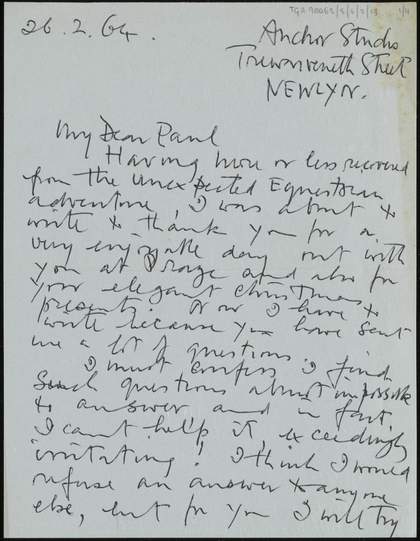 TGA 200
26.2.64.
Anchor Studio
Trewarveneth Street
NEWLYN.
My Dear Paul
Having more or less recovered
from the unexpected Equestrian
adventure, I was about to
write to thank you for a
very enjoyable day out with
you at and also for
your elegant christmas
present. Now I have to
write because you have sent
me a lot of questions.
I must confess I find
Such questions almost impossible
to answer and in fact,
I cant help it, exceedingly
irritating! I think I would
refuse an answer to anyone
else, but for you I will try